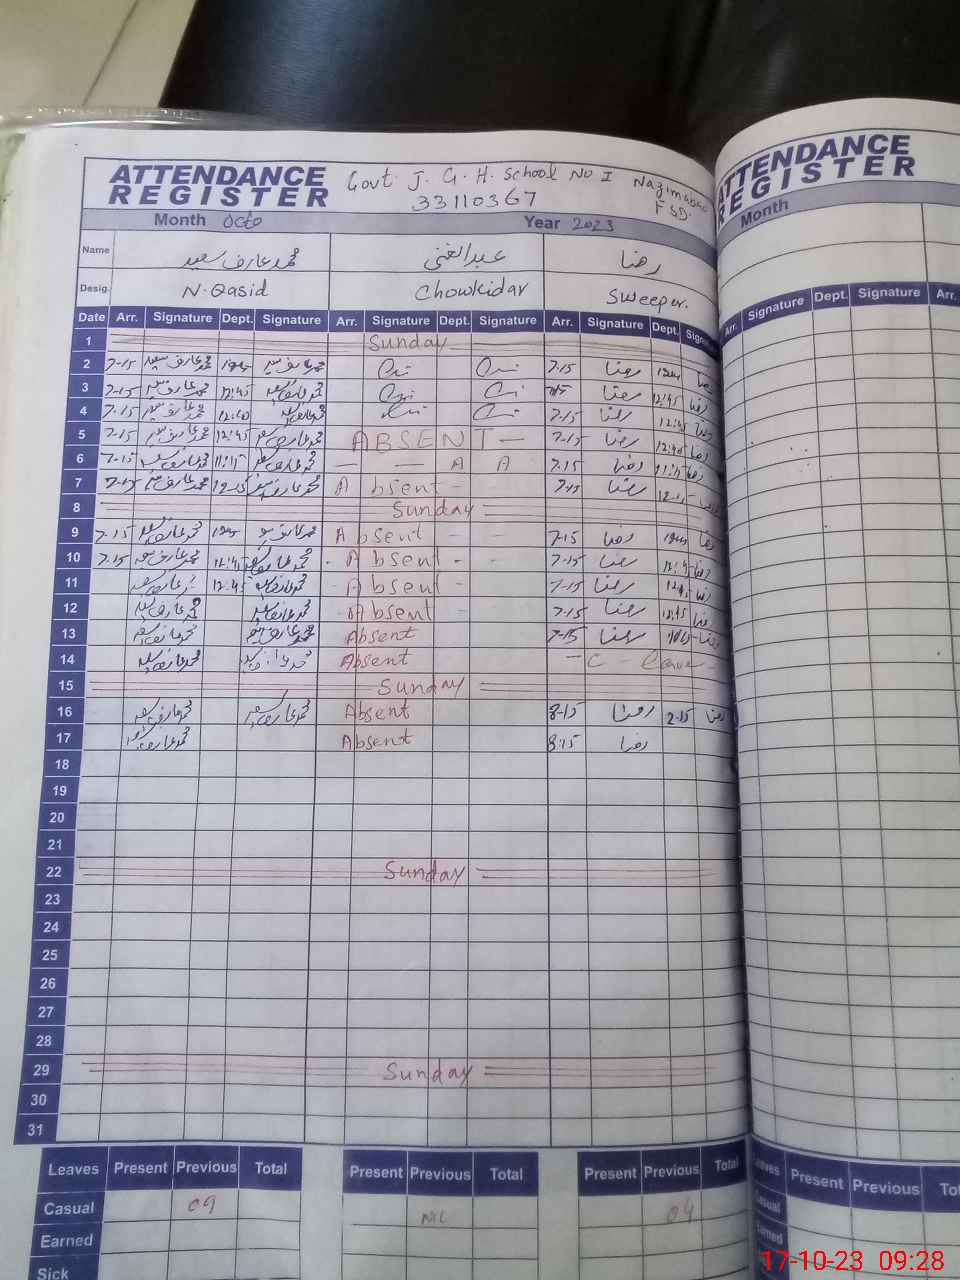 ATTENDANCE REGISTER Govt. J. G. H. School No I Nazimabad FSD.
33110367
Month Octo Year 2023
Name محمد عارف سعید عبدالغنی رضا
Desig. N-Qasid Chowkidar Sweeper.
Date Arr. Signature Dept. Signature Arr. Signature Dept. Signature Arr. Signature Dept.
1 Sunday
2 7-15 محمد عارف سعید 7-15 رضا
3 7-15 محمد عارف سعید 12:45 رضا 12:45 رضا
4 7-15 محمد عارف سعید 12:40 7-15 رضا 12:45 رضا
5 7-15 محمد عارف سعید 12:45 ABSENT — 7-15 رضا 12:45 رضا
6 7-15 محمد عارف سعید 11:15 — — A A 7.15 رضا 11:15 رضا
7 محمد عارف سعید Absent - - رضا
8 Sunday
9 7-15 محمد عارف سعید Absent - - 7-15 رضا رضا
10 7.15 محمد عارف سعید 12:45 - Absent - - 7-15 رضا 12:45 رضا
11 محمد عارف سعید 12:45 - Absent - 7-15 رضا رضا
12 محمد عارف سعید - Absent - 7-15 رضا 12:45 رضا
13 محمد عارف سعید Absent 7-15 رضا رضا
14 محمد عارف سعید Absent - C - Leave -
15 Sunday
16 محمد عارف سعید محمد عارف سعید Absent 8-15 رضا 2-15 رضا
17 محمد عارف سعید Absent 8:15 رضا
18
19
20
21
22 Sunday
23
24
25
26
27
28
29 Sunday
30
31
Leaves Present Previous Total Present Previous Total Present Previous Total
Casual 09 NIL 04
Earned
Sick
ATTENDANCE REGISTER
Month
Arr. Signature Dept. Signature Arr.
Leaves Present Previous
Casual
Earned
17-10-23 09:28